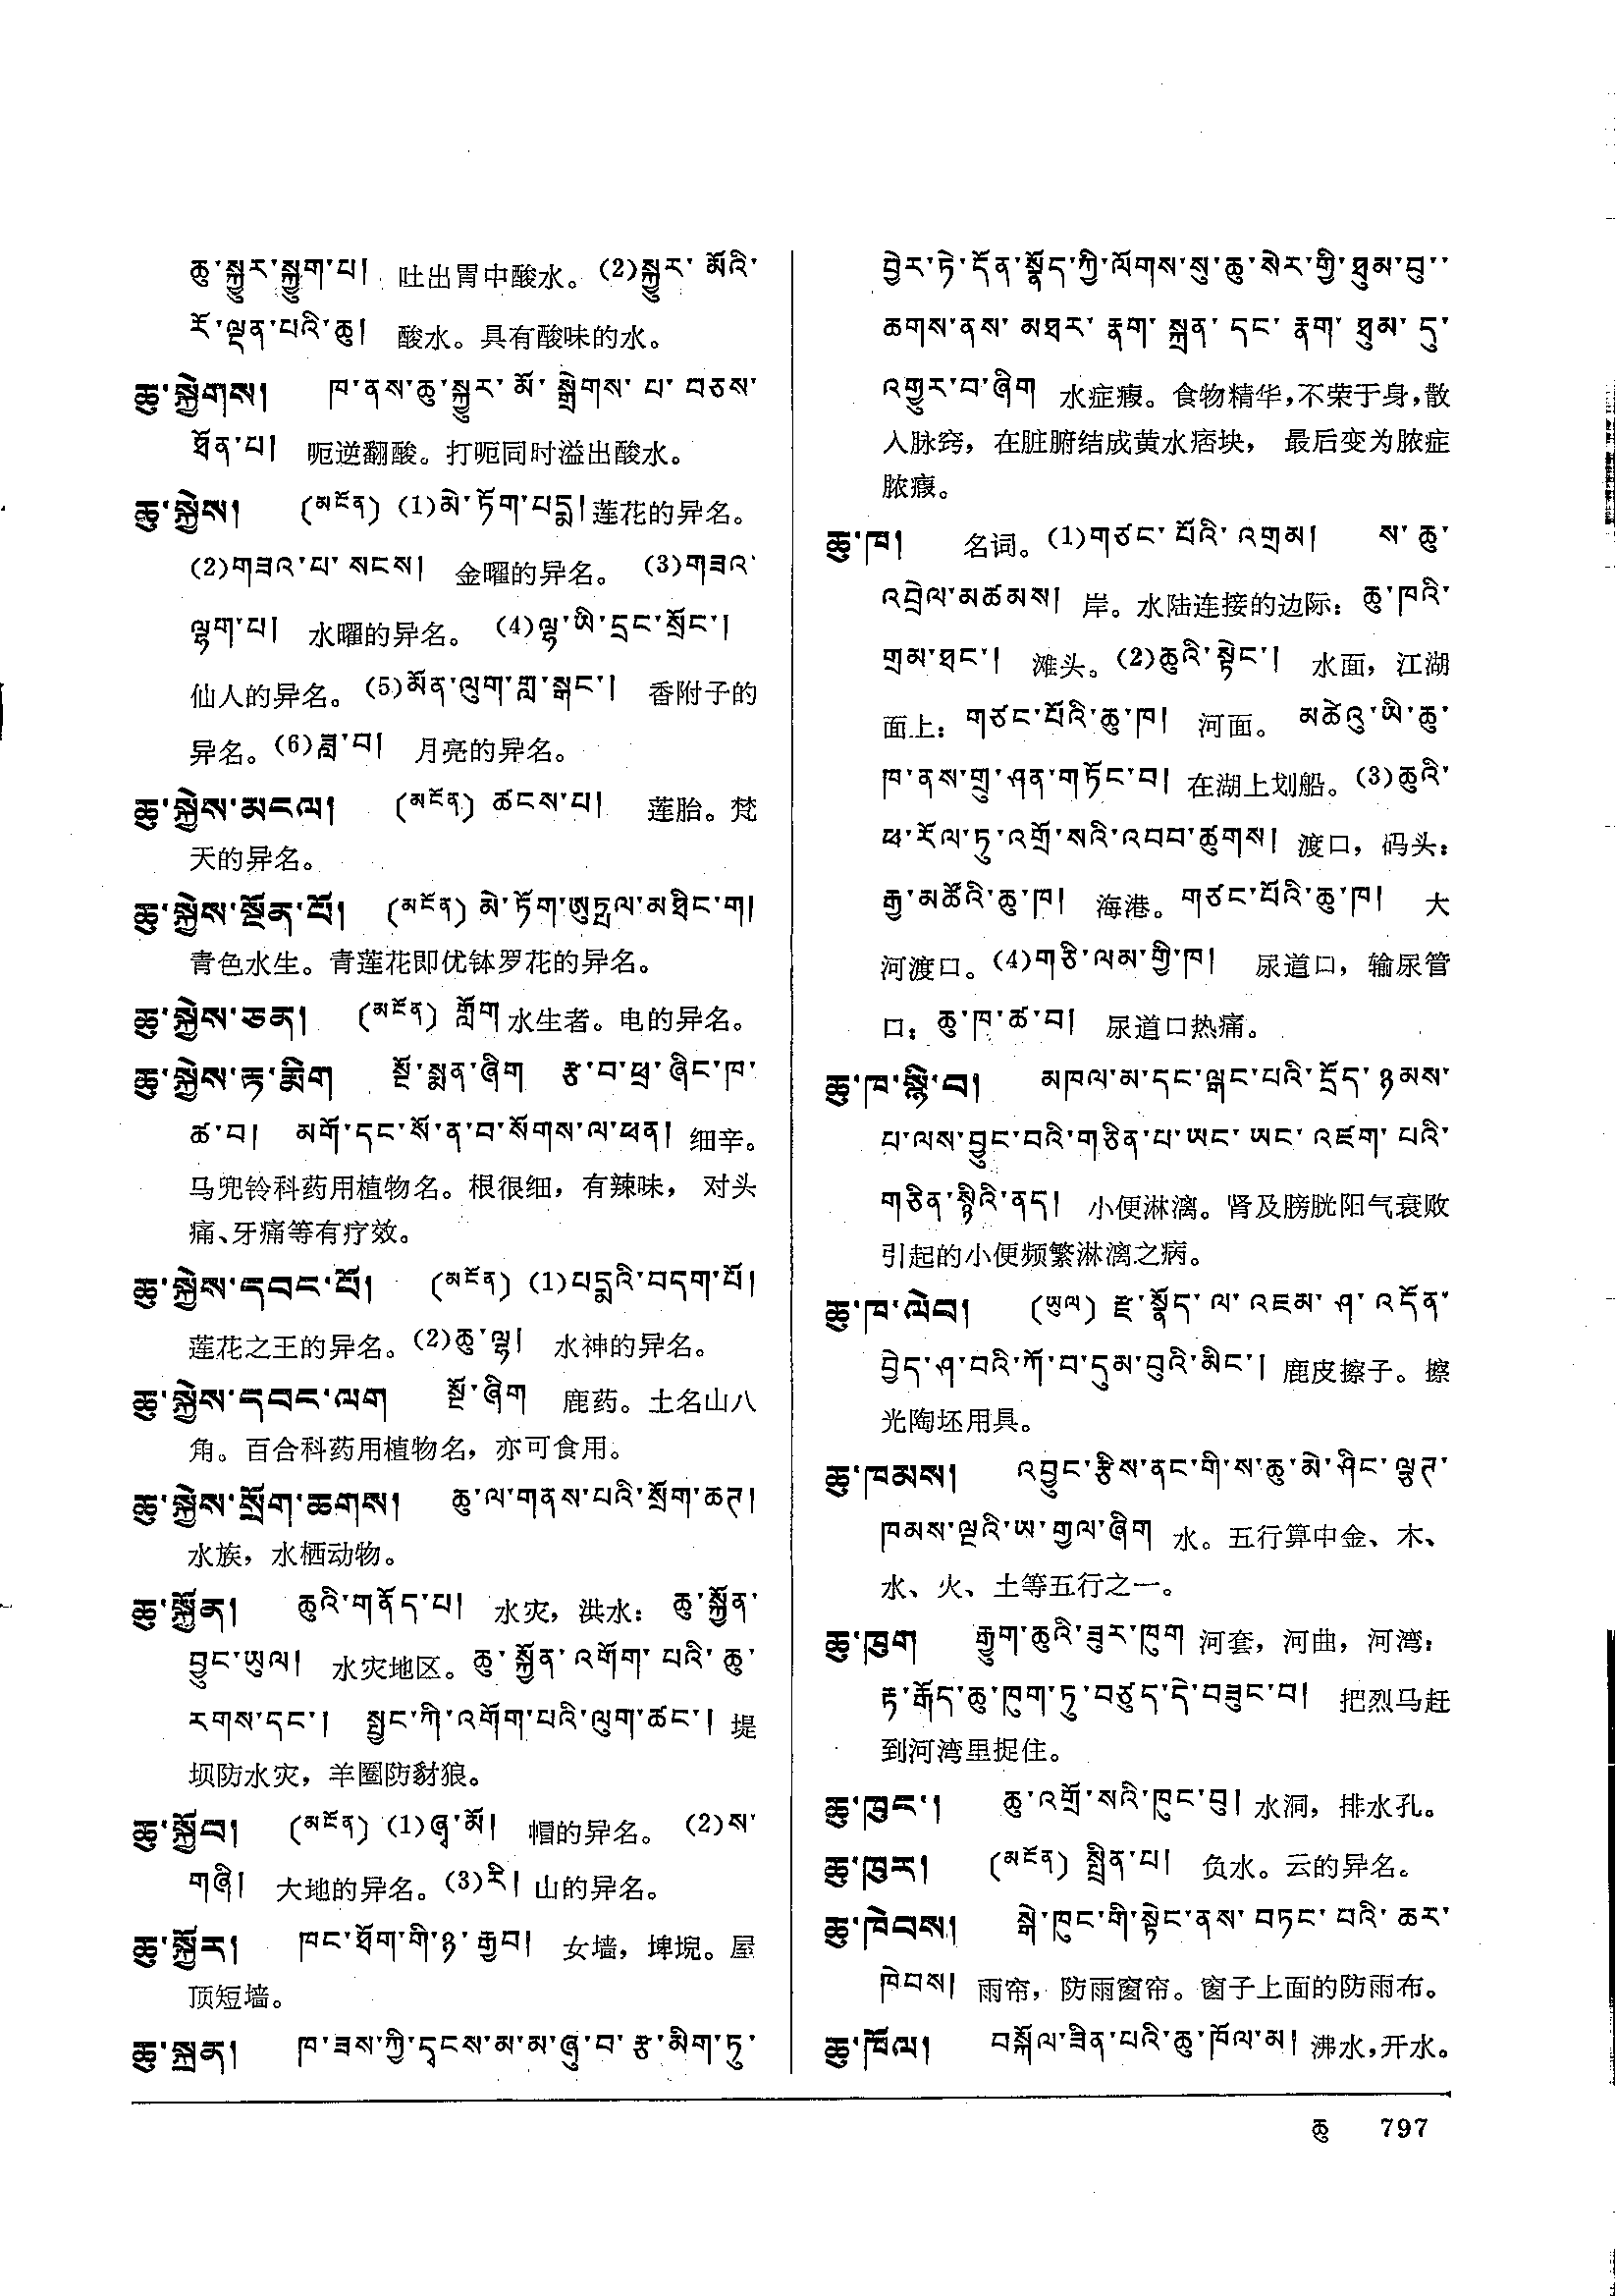 ཆུ་སྐྱུར་སྐྱུག་པ། 吐出胃中酸水。(2)སྐྱུར་མོའི་
རོ་ལྡན་པའི་ཆུ། 酸水。具有酸味的水。
ཆུ་སྐྱེགས། ཁ་ནས་ཆུ་སྐྱུར་མོ་སྒྲེགས་པ་བཅས་
ཐོན་པ། 呃逆翻酸。打呃同时溢出酸水。
ཆུ་སྐྱེས། (མངོན) (1)མེ་ཏོག་པདྨ། 莲花的异名。
(2)གཟའ་པ་སངས། 金曜的异名。(3)གཟའ་
ལྷག་པ། 水曜的异名。(4)ལྷ་ཡི་དྲང་སྲོང་།
仙人的异名。(5)མོན་ལུག་གླ་སྒང་། 香附子的
异名。(6)ཟླ་བ། 月亮的异名。
ཆུ་སྐྱེས་མངལ། (མངོན) ཚངས་པ། 莲胎。梵
天的异名。
ཆུ་སྐྱེས་སྔོན་པོ། (མངོན) མེ་ཏོག་ཨུཏྤལ་མཐིང་ག།
青色水生。青莲花即优钵罗花的异名。
ཆུ་སྐྱེས་ཅན། (མངོན) གློག 水生者。电的异名。
ཆུ་སྐྱེས་རྟ་རྨིག སྔོ་སྨན་ཞིག རྩ་བ་ཕྲ་ཞིང་ཁ་
ཚ་བ། མགོ་དང་སོ་ན་བ་སོགས་ལ་ཕན། 细辛。
马兜铃科药用植物名。根很细，有辣味，对头
痛、牙痛等有疗效。
ཆུ་སྐྱེས་དབང་པོ། (མངོན) (1)པདྨའི་བདག་པོ།
莲花之王的异名。(2)ཆུ་ལྷ། 水神的异名。
ཆུ་སྐྱེས་དབང་ལག སྔོ་ཞིག 鹿药。土名山八
角。百合科药用植物名，亦可食用。
ཆུ་སྐྱེས་སྲོག་ཆགས། ཆུ་ལ་གནས་པའི་སྲོག་ཆཊ།
水族，水栖动物。
ཆུ་སྐྱོན། ཆུའི་གནོད་པ། 水灾，洪水：ཆུ་སྐྱོན་
བྱུང་ཡུལ། 水灾地区。ཆུ་སྐྱོན་འགོག་པའི་ཆུ་
རགས་དང་། སྤྱང་ཀི་འགོག་པའི་ལུག་ཚང་། 堤
坝防水灾，羊圈防豺狼。
ཆུ་སྐྱོབ། (མངོན) (1)ཞྭ་མོ། 帽的异名。(2)ས་
གཞི། 大地的异名。(3)རི། 山的异名。
ཆུ་སྐྱོར། ཁང་ཐོག་གི་ཉ་རྒྱབ། 女墙，埤堄。屋
顶短墙。
ཆུ་སྐྲན། ཁ་ཟས་ཀྱི་དྭངས་མ་མ་ཞུ་བ་རྩ་མིག་ཏུ་
བྱེར་ཏེ་དོན་སྣོད་ཀྱི་ལོགས་སུ་ཆུ་སེར་གྱི་ཐུམ་བུ་
ཆགས་ནས་མཐར་རྣག་སྐྲན་དང་རྣག་ཐུམ་དུ་
འགྱུར་བ་ཞིག 水症瘕。食物精华，不荣于身，散
入脉窍，在脏腑结成黄水痞块，最后变为脓症
脓瘕。
ཆུ་ཁ། 名词。(1)གཙང་པོའི་འགྲམ། ས་ཆུ་
འབྲེལ་མཚམས། 岸。水陆连接的边际：ཆུ་ཁའི་
གྲམ་ཐང་། 滩头。(2)ཆུའི་སྟེང་། 水面，江湖
面上：གཙང་པོའི་ཆུ་ཁ། 河面。མཚེའུ་ཡི་ཆུ་
ཁ་ནས་གྲུ་ཤན་གཏོང་བ། 在湖上划船。(3)ཆུའི་
ཕ་རོལ་ཏུ་འགྲོ་སའི་འབབ་ཚུགས། 渡口，码头：
རྒྱ་མཚོའི་ཆུ་ཁ། 海港。གཙང་པོའི་ཆུ་ཁ། 大
河渡口。(4)གཅི་ལམ་གྱི་ཁ། 尿道口，输尿管
口：ཆུ་ཁ་ཚ་བ། 尿道口热痛。
ཆུ་ཁ་སྙི་བ། མཁལ་མ་དང་ལྒང་པའི་དྲོད་ཉམས་
པ་ལས་བྱུང་བའི་གཅིན་པ་ཡང་ཡང་འཛག་པའི་
གཅིན་སྙིའི་ནད། 小便淋漓。肾及膀胱阳气衰败
引起的小便频繁淋漓之病。
ཆུ་ཁ་ལེབ། (ཡུལ) རྫ་སྣོད་ལ་འཇམ་ཤ་འདོན་
བྱེད་ཤ་བའི་ཀོ་བ་དུམ་བུའི་མིང་། 鹿皮擦子。擦
光陶坯用具。
ཆུ་ཁམས། འབྱུང་རྩིས་ནང་གི་ས་ཆུ་མེ་ཤིང་ལྕཊ་
ཁམས་ལྔའི་ཨ་གྱལ་ཞིག 水。五行算中金、木、
水、火、土等五行之一。
ཆུ་ཁུག རྒྱུག་ཆུའི་ཟུར་ཁུག 河套，河曲，河湾：
རྟ་རྒོད་ཆུ་ཁུག་ཏུ་བཙུད་དེ་བཟུང་བ། 把烈马赶
到河湾里捉住。
ཆུ་ཁུང་། ཆུ་འགྲོ་སའི་ཁུང་བུ། 水洞，排水孔。
ཆུ་ཁུར། (མངོན) སྤྲིན་པ། 负水。云的异名。
ཆུ་ཁེབས། སྒེ་ཁུང་གི་སྟེང་ནས་བཏང་པའི་ཆར་
ཁེབས། 雨帘，防雨窗帘。窗子上面的防雨布。
ཆུ་ཁོལ། བསྐོལ་ཟིན་པའི་ཆུ་ཁོལ་མ། 沸水，开水。
ཆུ 797